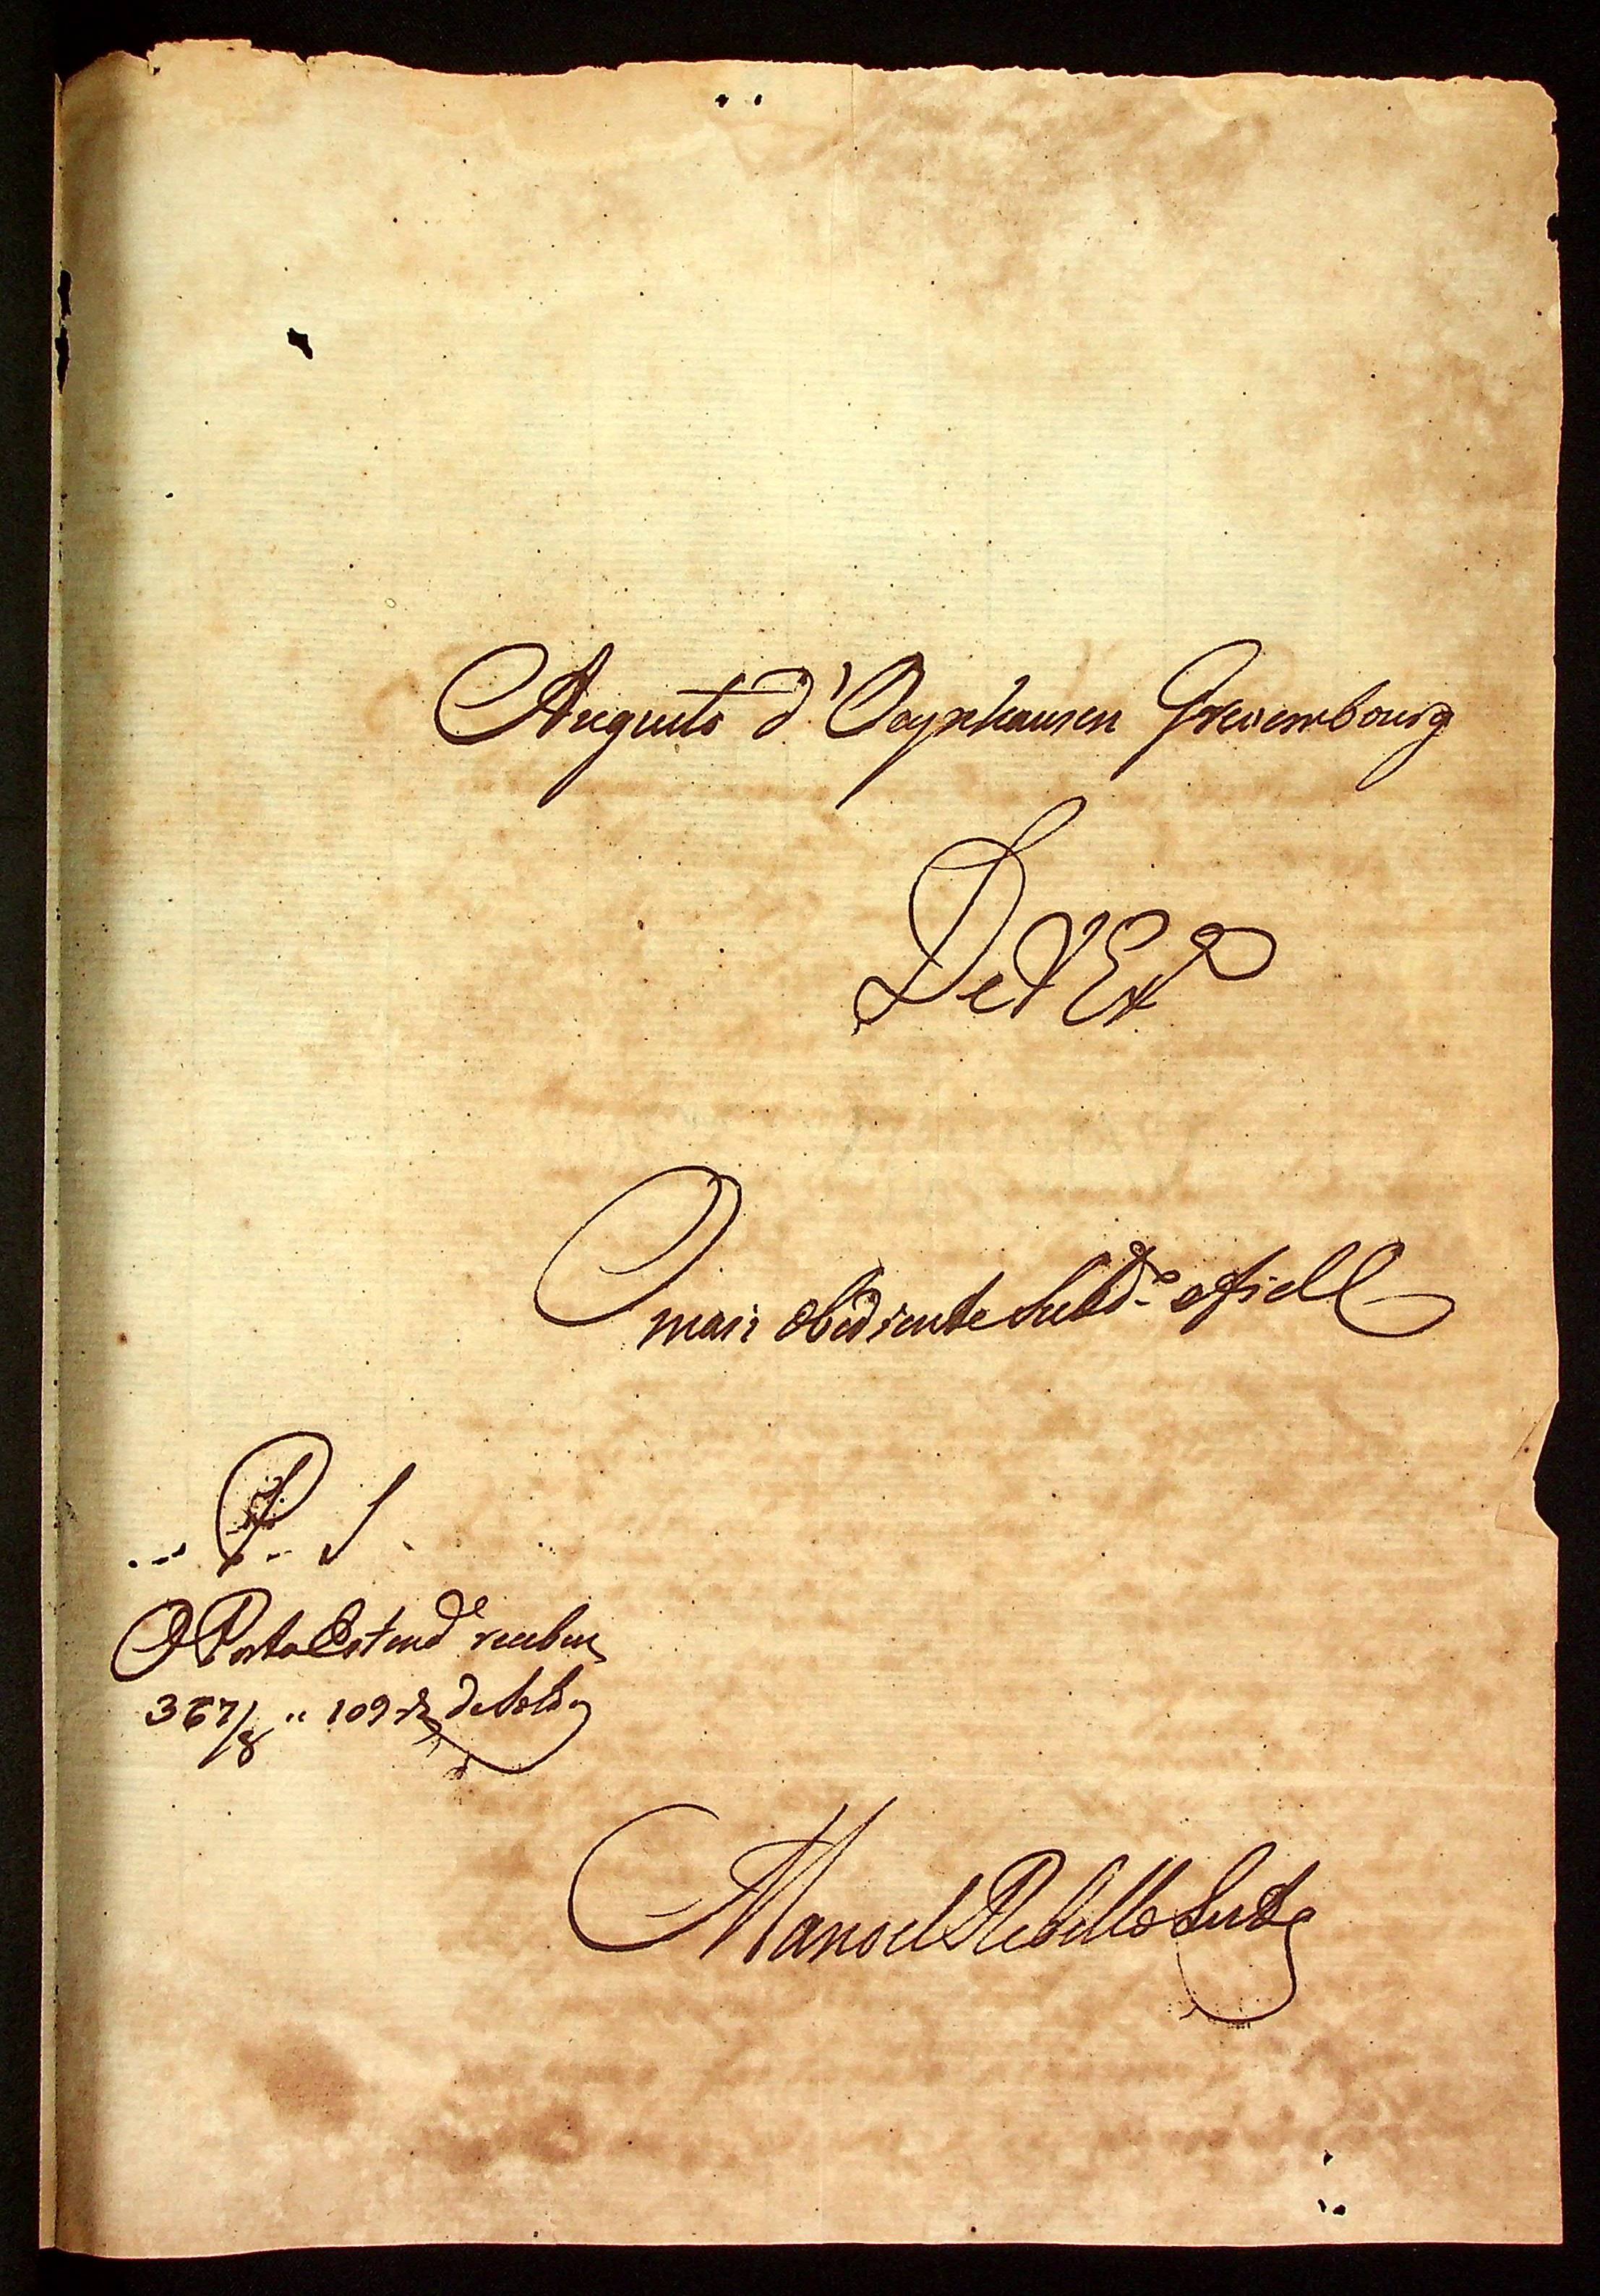 Augusto d'Oeynhausen Grevembourg
De V Exª
O mais obediente Subdº e fiell
P. S.
O Porta Estendᵉ recebeu
367/8ª " 109 rs de Soldo
Manoel Rebello